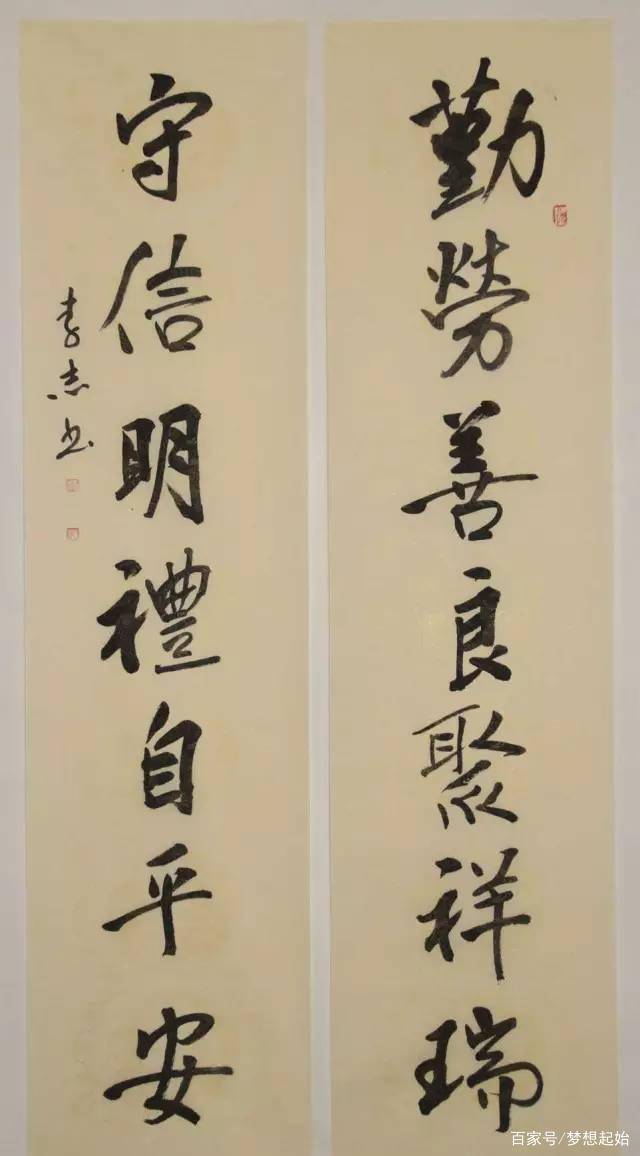 勤勞善良聚祥瑞
守信明禮自平安
李志书
百家号/梦想起始